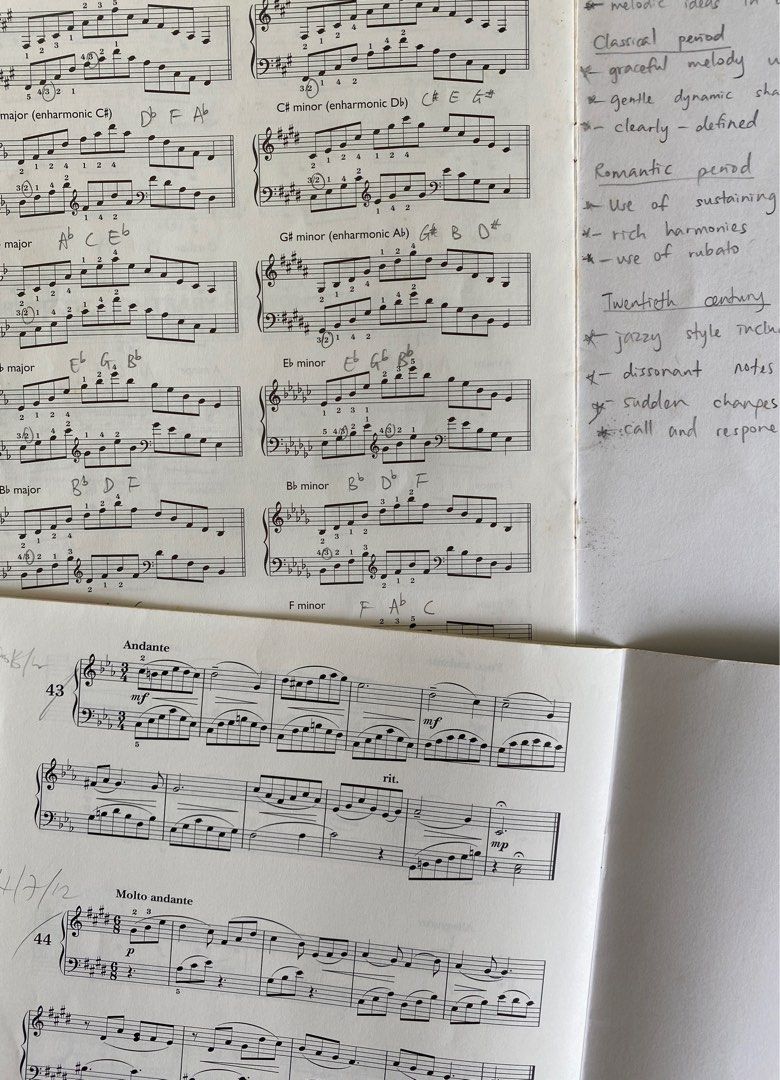 major (enharmonic C#) Db F Ab
C# minor (enharmonic Db) C# E G#
major Ab C Eb
G# minor (enharmonic Ab) G# B D#
major Eb G Bb
Eb minor Eb Gb Bb
Bb major Bb D F
Bb minor Bb Db F
F minor F Ab C
melodic ideas in
Classical period
graceful melody
gentle dynamic sha
clearly - defined
Romantic period
Use of sustaining
rich harmonies
use of rubato
Twentieth century
jazzy style inclu
dissonant notes
sudden changes
call and respone
Andante
43
mf
mf
rit.
mp
Molto andante
44
p